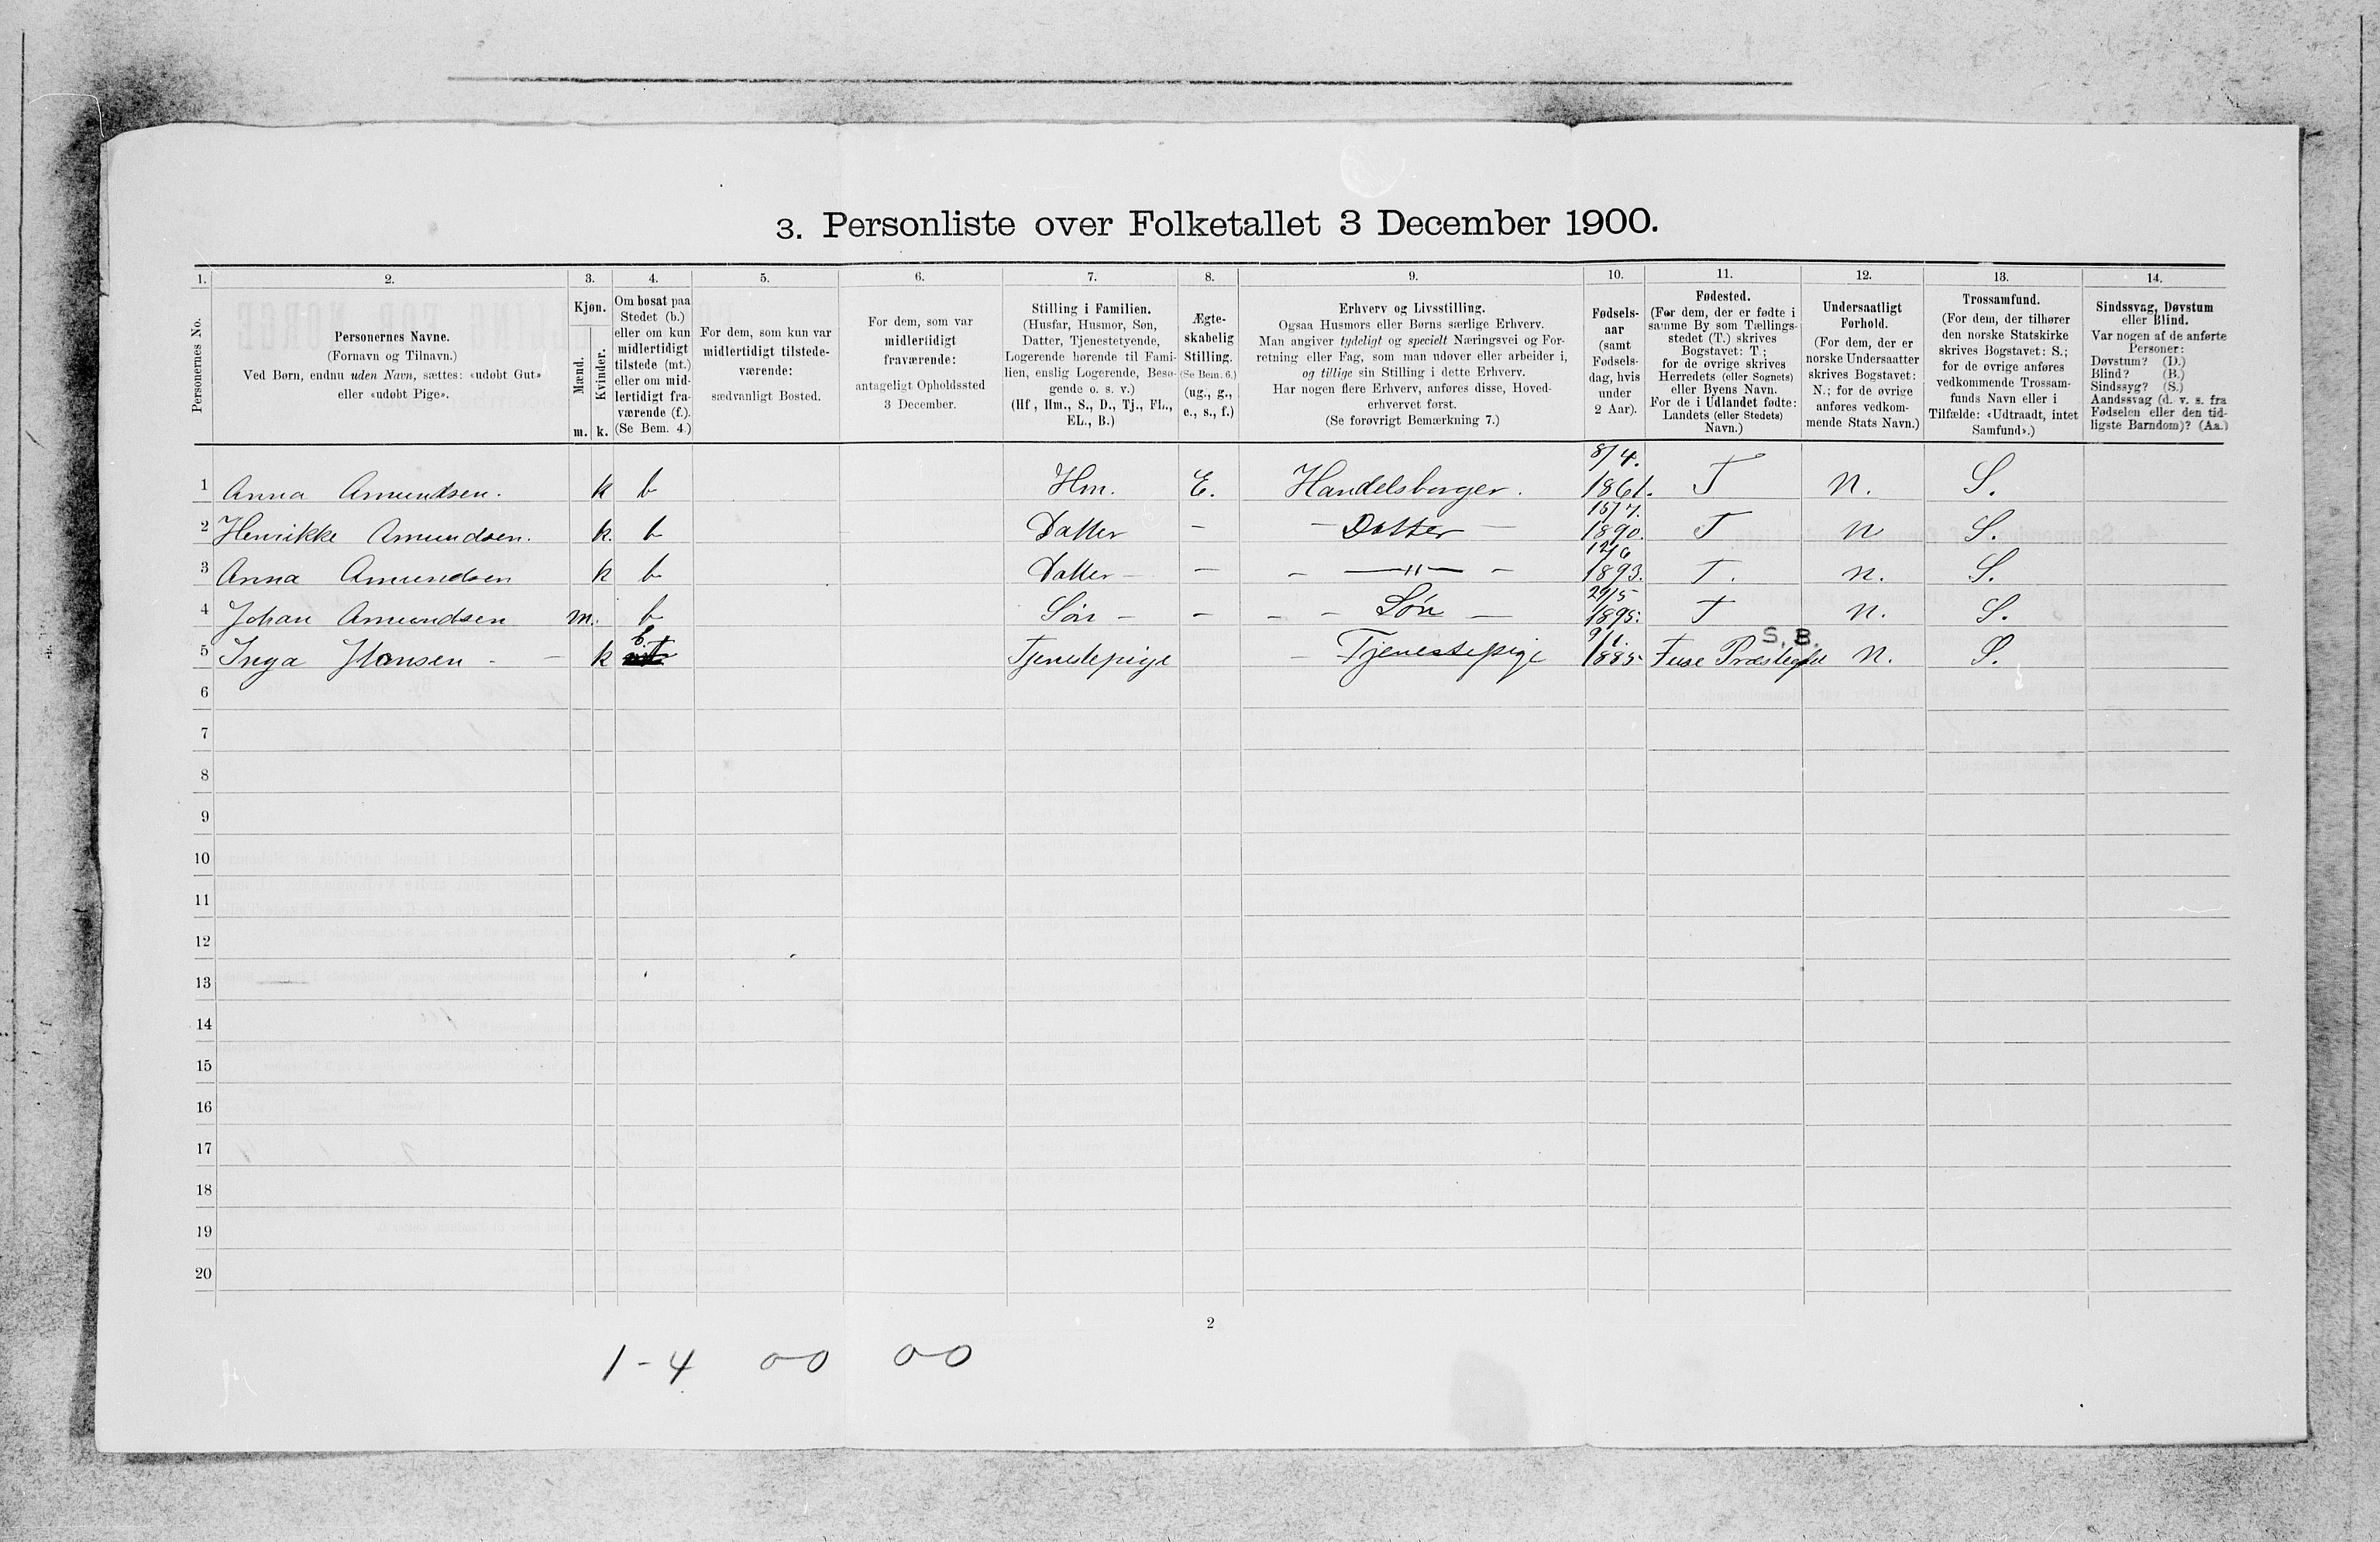 3. Personliste over Folketallet 3 December 1900.
1. 2. 3. 4. 5. 6. 7. 8. 9. 10. 11. 12. 13. 14.
Personernes No.
Personernes Navne.
(Fornavn og Tilnavn.)
Ved Børn, endnu uden Navn, sættes: «udøbt Gut»
eller «udøbt Pige».
Kjøn.
Mænd.
Kvinder.
m. k.
Om bosat paa
Stedet (b.)
eller om kun
midlertidigt
tilstede (mt.)
eller om mid-
lertidigt fra-
værende (f.).
(Se Bem. 4.)
For dem, som kun var
midlertidigt tilstede-
værende:
sædvanligt Bosted.
For dem, som var
midlertidigt
fraværende:
antageligt Opholdssted
3 December.
Stilling i Familien.
(Husfar, Husmor, Søn,
Datter, Tjenestetyende,
Logerende hørende til Fami-
lien, enslig Logerende, Besø-
gende o. s. v.)
(Hf, Hm., S., D., Tj., FL.,
EL., B.)
Ægte-
skabelig
Stilling.
(Se Bem. 6.)
(ug., g.,
e., s., f.)
Erhverv og Livsstilling.
Ogsaa Husmors eller Børns særlige Erhverv.
Man angiver tydeligt og specielt Næringsvei og For-
retning eller Fag, som man udøver eller arbeider i,
og tillige sin Stilling i dette Erhverv.
Har nogen flere Erhverv, anføres disse, Hoved-
erhvervet først.
(Se forøvrigt Bemærkning 7.)
Fødsels-
aar
(samt
Fødsels-
dag, hvis
under
2 Aar).
Fødested.
(For dem, der er fødte i
samme By som Tællings-
stedet (T.) skrives
Bogstavet: T.;
for de øvrige skrives
Herredets (eller Sognets)
eller Byens Navn.
For de i Udlandet fødte:
Landets (eller Stedets)
Navn.)
Undersaatligt
Forhold.
(For dem, der er
norske Undersaatter
skrives Bogstavet:
N.; for de øvrige
anføres vedkom-
mende Stats Navn.)
Trossamfund.
(For dem, der tilhører
den norske Statskirke
skrives Bogstavet: S.;
for de øvrige anføres
vedkommende Trossam-
funds Navn eller i
Tilfælde: «Udtraadt, intet
Samfund».)
Sindssvag, Døvstum
eller Blind.
Var nogen af de anførte
Personer:
Døvstum? (D.)
Blind? (B.)
Sindssyg? (S.)
Aandssvag (d. v. s. fra
Fødselen eller den tid-
ligste Barndom)? (Aa.)
1 Anna Amundsen. k b Hm. E. Handelsborger. 8/4. 1861. T N. S.
2 Henrikke Amundsen. k. b Datter - - Datter - 15/7. 1890. T N S.
3 Anna Amundsen k b Datter - - - — " — - 12/6 1893. T. N. S.
4 Johan Amundsen m. b Søn - - - - Søn - 29/5 1895. T N. S.
5 Inga Hansen - - k b. Tjenestepige - Tjenestepige 9/1. 1885 Fuse Præstegjld S. B. N. S.
6
7
8
9
10
11
12
13
14
15
16
17
18
19
20
2
1-4 0-0 0-0